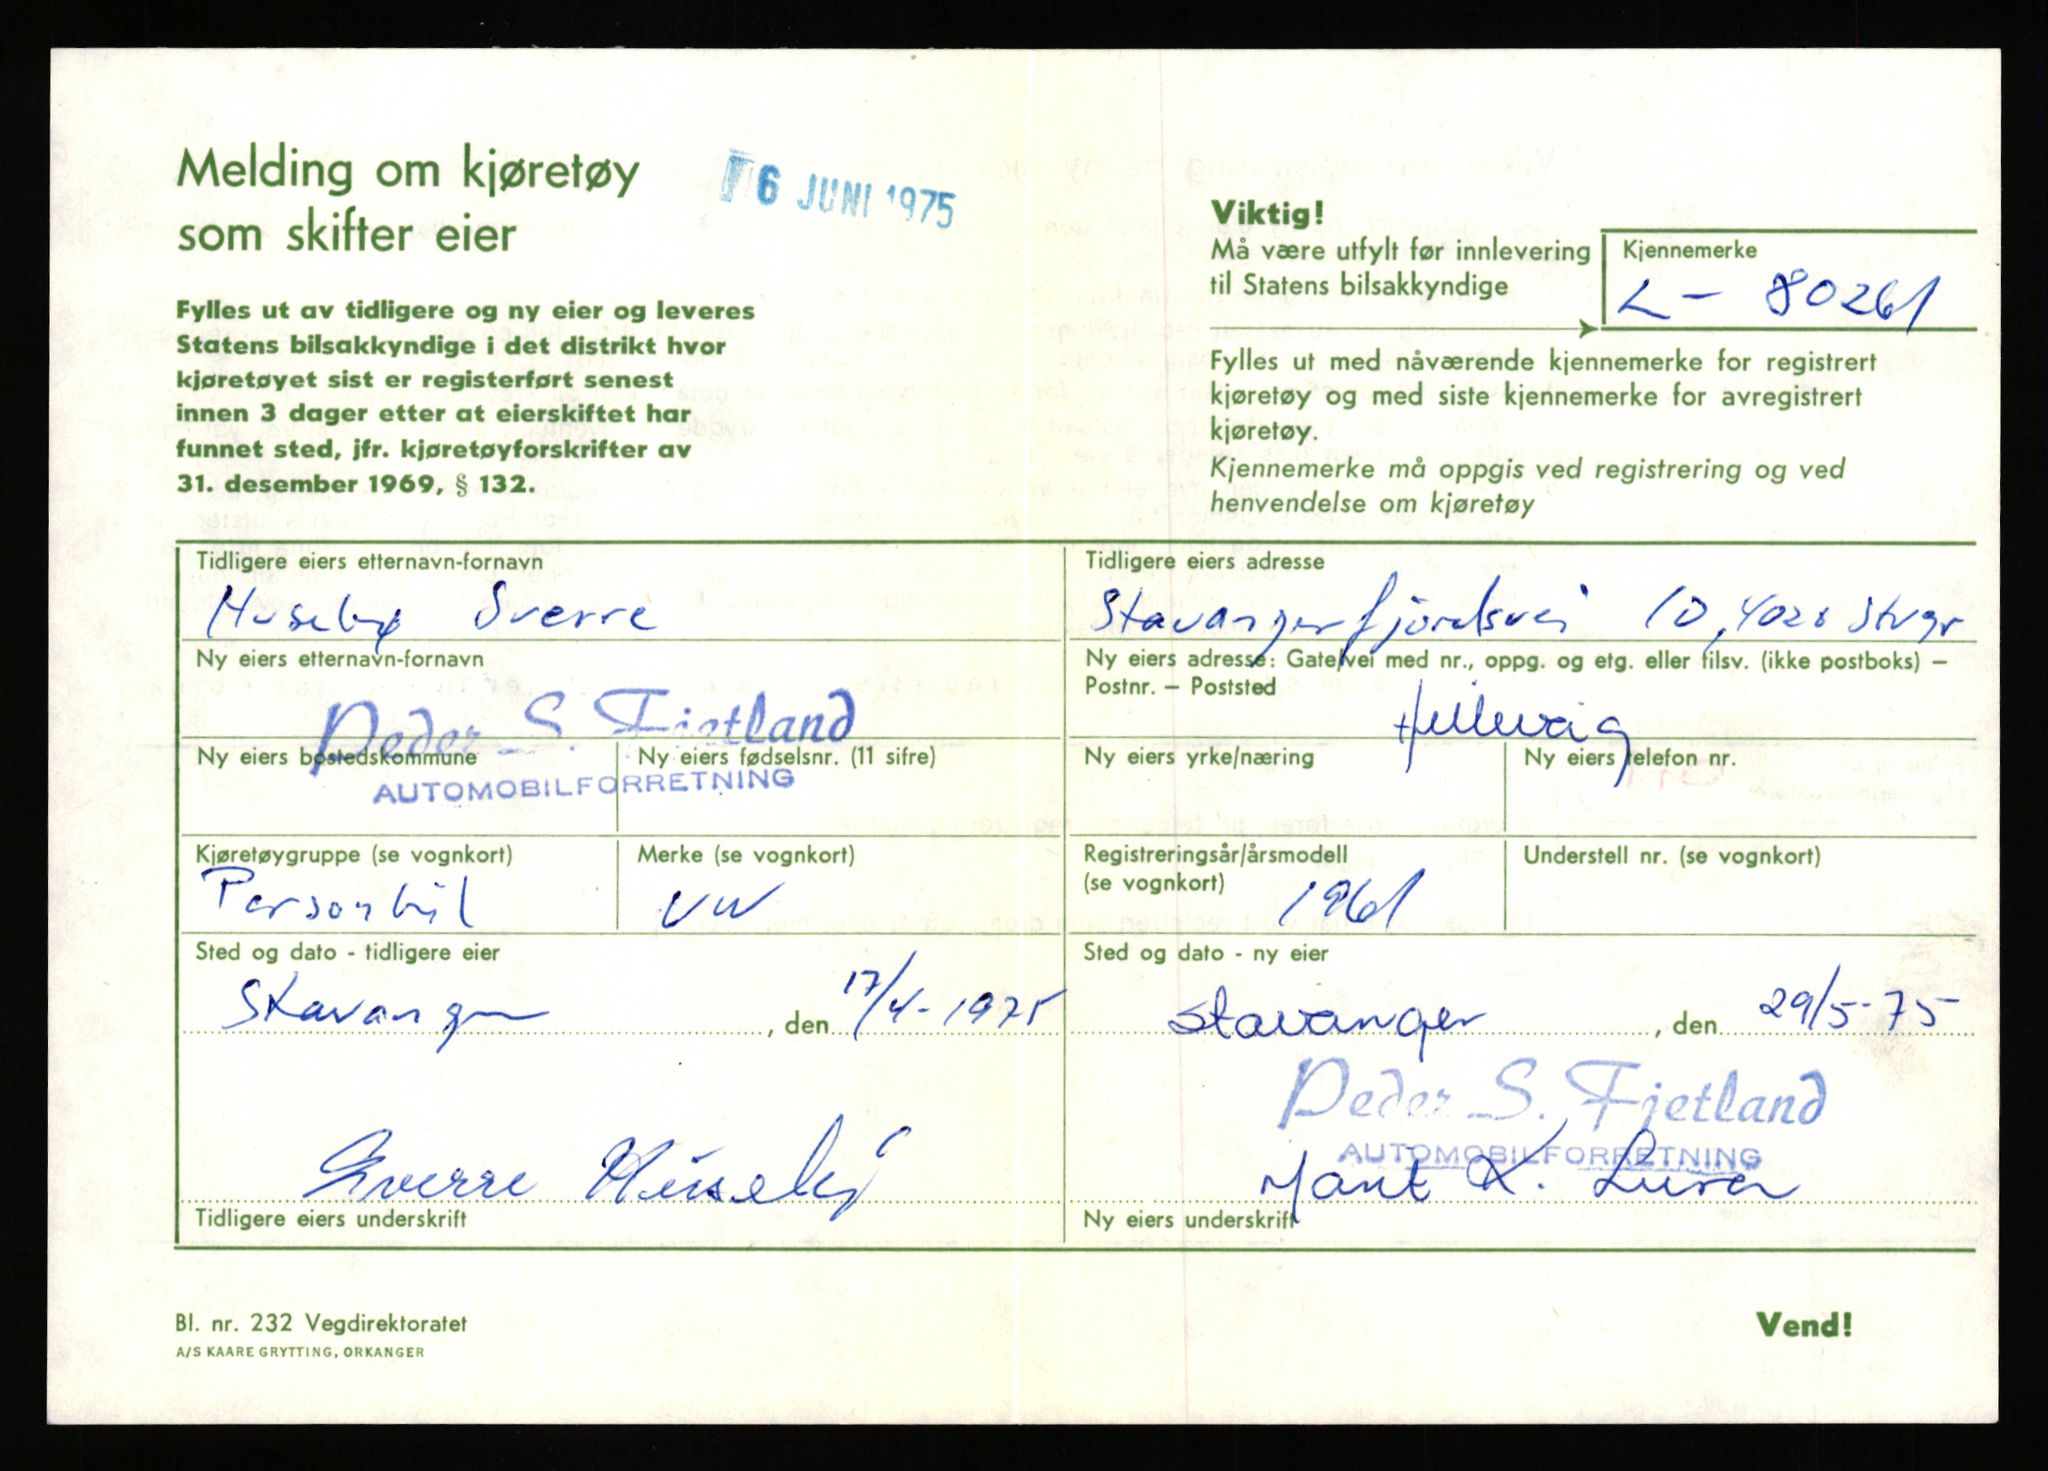 Melding om kjøretøy
som skifter eier
6 JUNI 1975
Fylles ut av tidligere og ny eier og leveres
Statens bilsakkyndige i det distrikt hvor
kjøretøyet sist er registerført senest
innen 3 dager etter at eierskiftet har
funnet sted, jfr. kjøretøyforskrifter av
31. desember 1969, § 132.
Viktig!
Må være utfylt før innlevering
til Statens bilsakkyndige
Kjennemerke
L - 80261
Fylles ut med nåværende kjennemerke for registrert
kjøretøy og med siste kjennemerke for avregistrert
kjøretøy.
Kjennemerke må oppgis ved registrering og ved
henvendelse om kjøretøy
Tidligere eiers etternavn-fornavn
Husebø Sverre
Tidligere eiers adresse
Stavangerfjordsvei 10, 4020 Stvgr
Ny eiers etternavn-fornavn
Peder S. Fjetland
AUTOMOBILFORRETNING
Ny eiers adresse: Gate/vei med nr., oppg. og etg. eller tilsv. (ikke postboks) —
Postnr. — Poststed
Hillevåg
Ny eiers bostedskommune
Ny eiers fødselsnr. (11 sifre)
Ny eiers yrke/næring
Ny eiers telefon nr.
Kjøretøygruppe (se vognkort)
Personbil
Merke (se vognkort)
VW
Registreringsår/årsmodell
(se vognkort)
1961
Understell nr. (se vognkort)
Sted og dato - tidligere eier
Stavanger, den 17/4-1975
Sted og dato - ny eier
Stavanger, den 29/5-75
Sverre Husebø
Tidligere eiers underskrift
Peder S. Fjetland
AUTOMOBILFORRETNING
K. Lura
Ny eiers underskrift
Bl. nr. 232 Vegdirektoratet
A/S KAARE GRYTTING, ORKANGER
Vend!